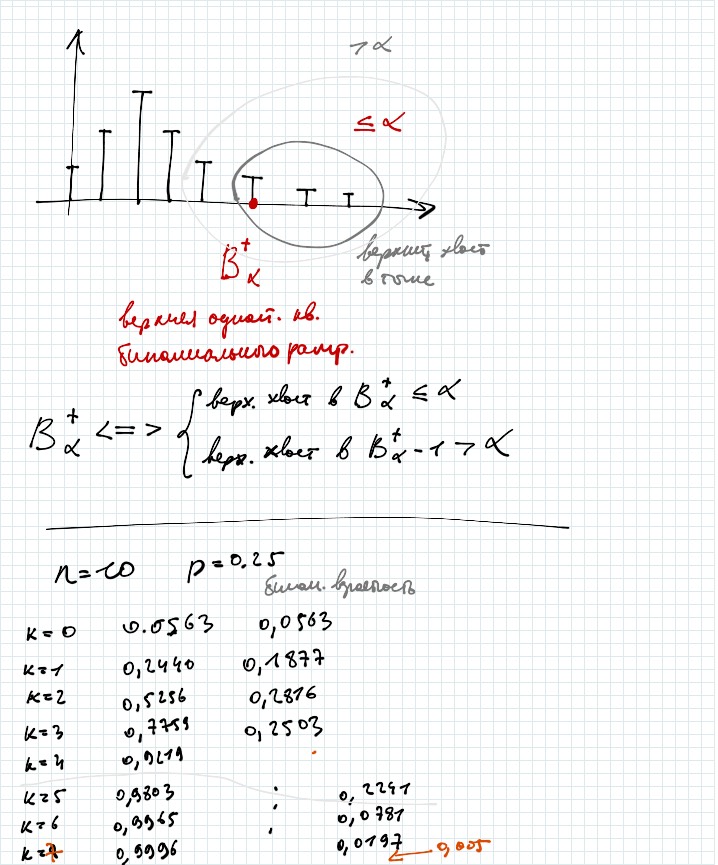 > α
≤ α
B⁺α
верхний хвост
в точке
верхняя одност. кв.
биномиального распр.
B⁺α <=> { верх. хвост в B⁺α ≤ α
верх. хвост в B⁺α - 1 > α
n=10 p=0.25
бином. вероятность
k=0 0.0563 0,0563
k=1 0,2440 0,1877
k=2 0,5256 0,2816
k=3 0,7759 0,2503
k=4 0,9219
k=5 0,9803 : 0,2241
k=6 0,9965 , 0,0781
k=7 0,9996 0,0197 ← 0,005